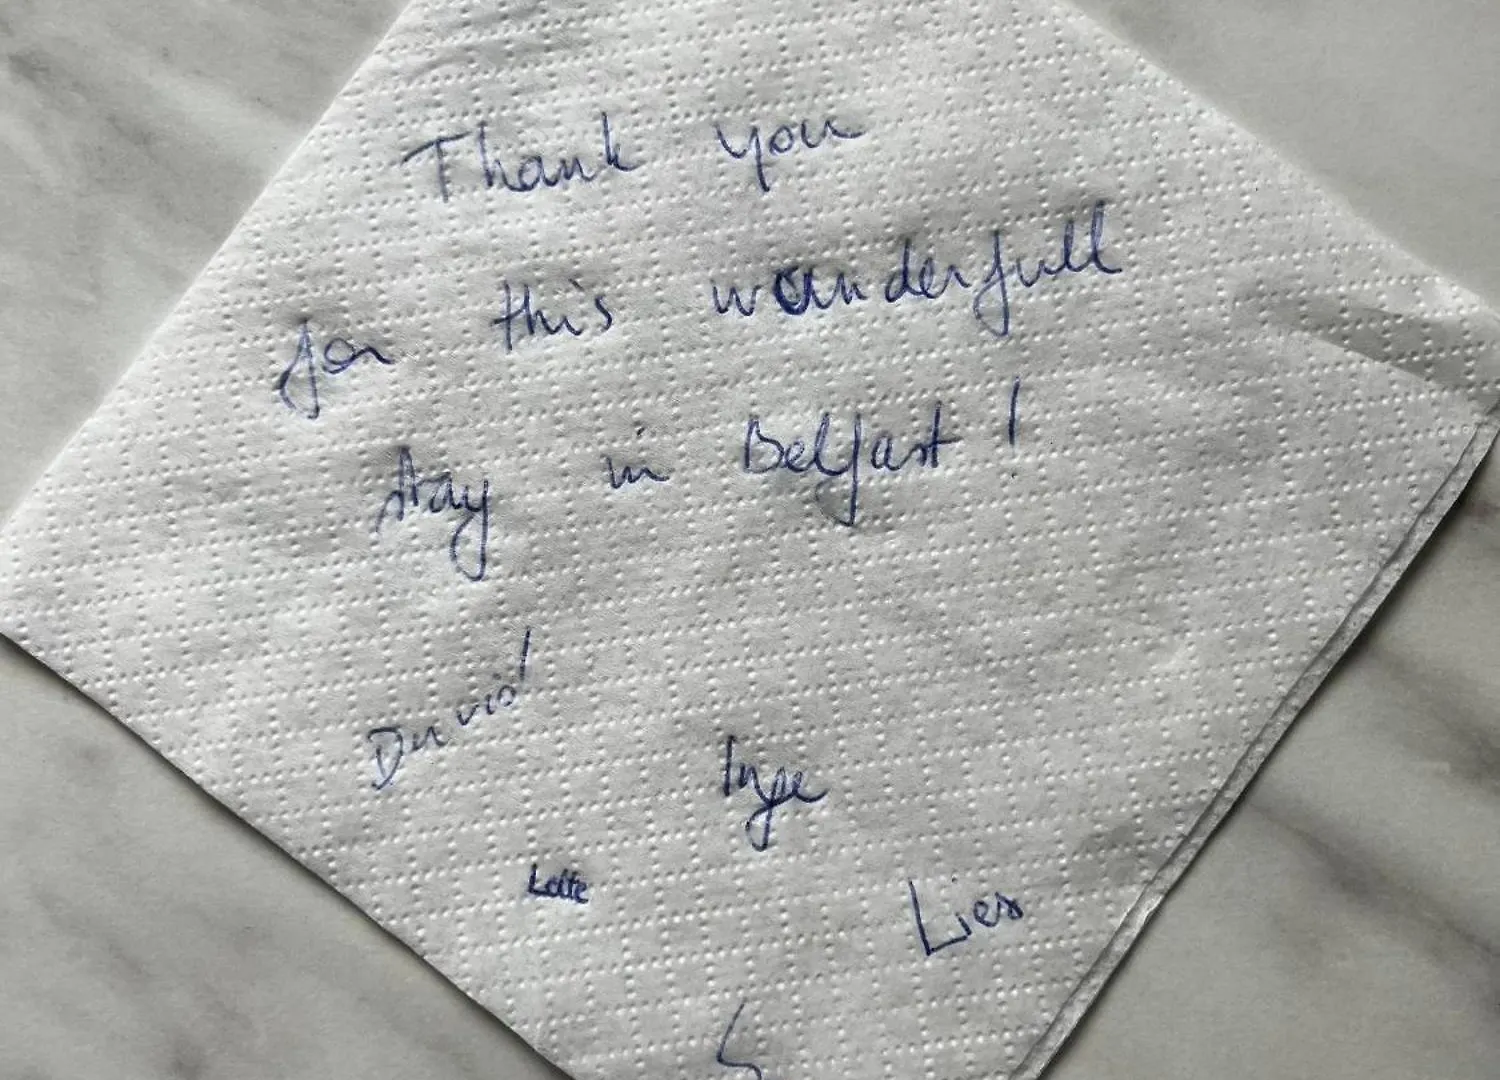 Thank you
for this wonderfull
stay in Belfast!
Inge
Lotte
Lies